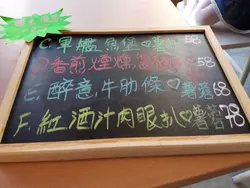 C.軍艦魚堡♡薯 58
D.香煎煙燻 58
E.醉意牛肋條♡薯蓉68
F.紅酒汁肉眼扒♡薯蓉78